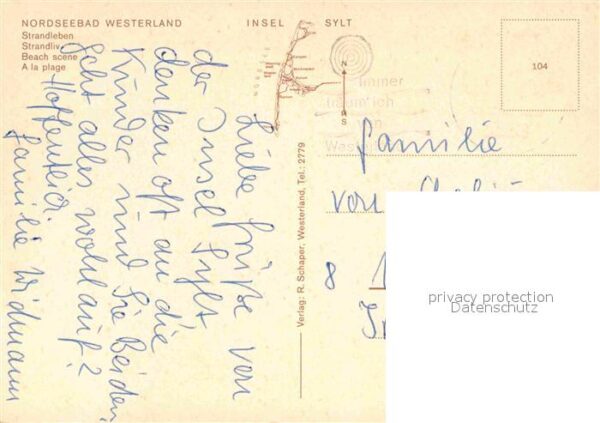 NORDSEEBAD WESTERLAND
Strandleben
Strandliv
Beach scene
A la plage
INSEL SYLT
N
S
104
immer
träum' ich
von
Westerland
Verlag: R. Schaper, Westerland, Tel.: 2779
Liebe Grüße von
der Insel Sylt
denken oft an die
Kinder und Sie beiden.
Geht alles wohlauf?
Hoffentlich
Familie Widmann
Familie
von
8
privacy protection
Datenschutz